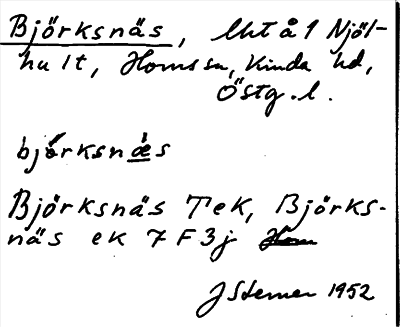 Björksnäs, lht å 1 Njöl-
hult, Hornssn, Kinda hd,
Östg.l.
björksnæs
Björksnäs Tek, Björks-
näs ek 7F3j
J Sterner 1952